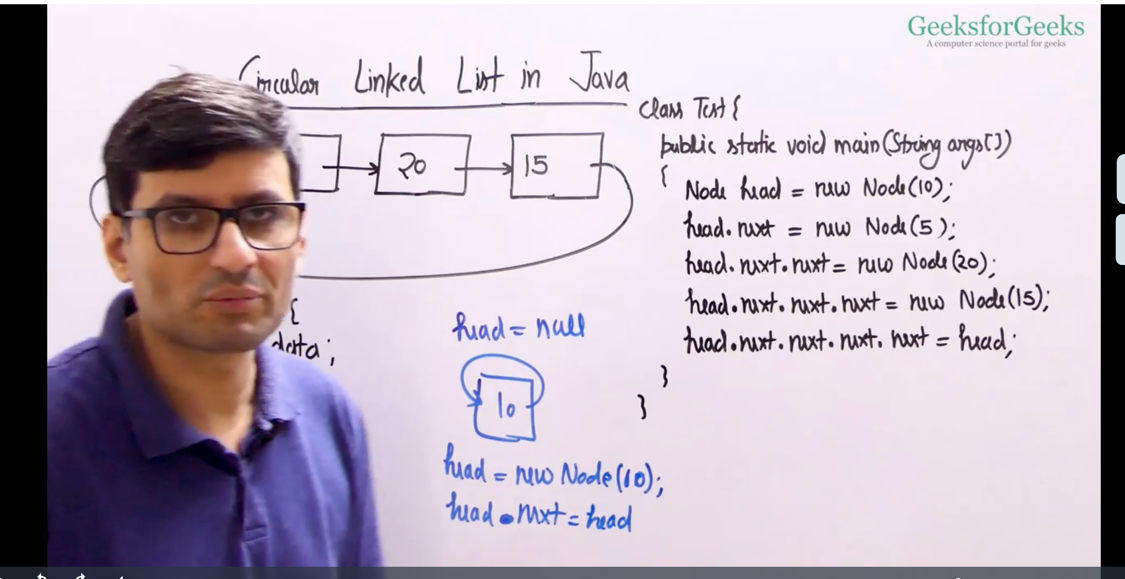 GeeksforGeeks
A computer science portal for geeks
Circular Linked List in Java
20
15
{
data;
head = null
10
head = new Node(10);
head.next = head
class Test {
public static void main(String args[])
{
Node head = new Node(10);
head.next = new Node(5);
head.next.next = new Node(20);
head.next.next.next = new Node(15);
head.next.next.next.next = head;
}
}